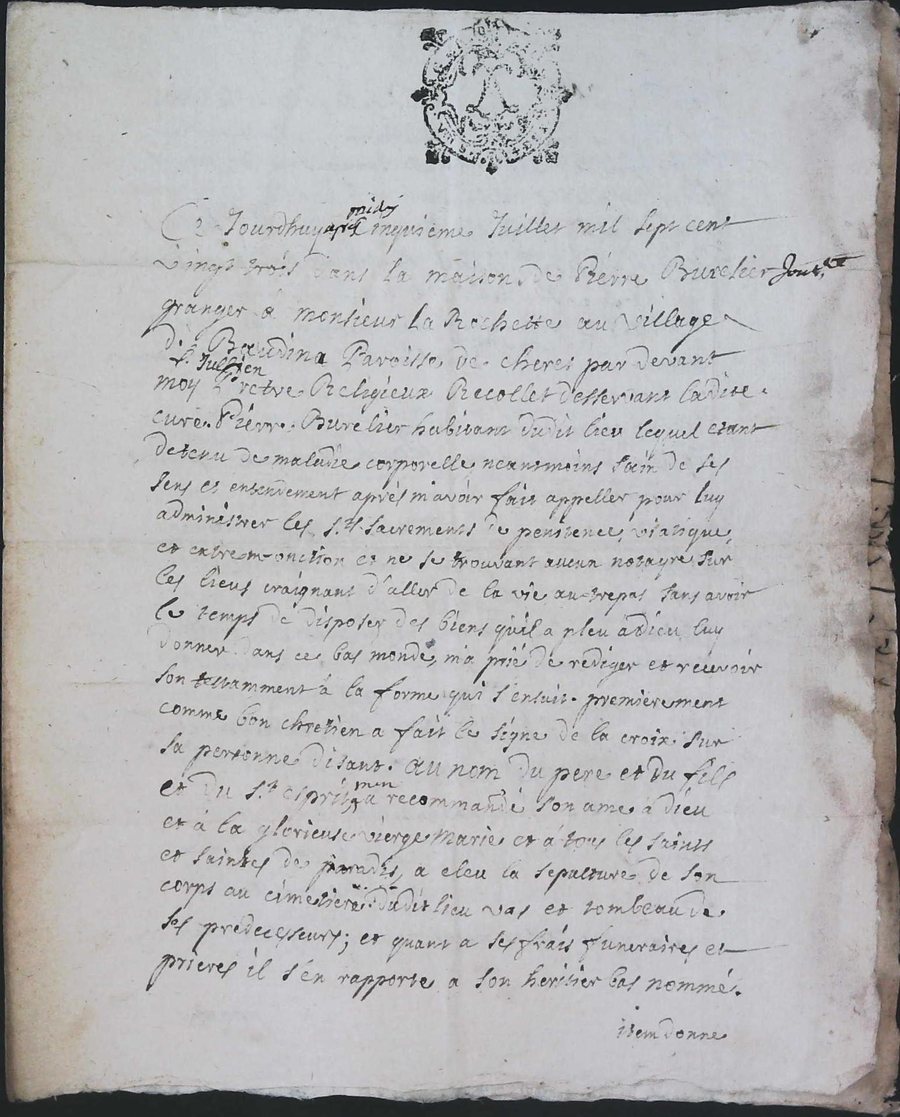 Ce Jourdhuy apres midy cinquieme Juillet mil sept cent
vingt trois dans la maison de Pierre Burelier
granger a monsieur La Rochette au village
de Baudina Paroisse de cheres par devant
moy f. Jullien Pretre Religieux Recollet desservant la dite
cure Pierre Burelier habitant dudit lieu lequel etant
detenu de maladie corporelle neansmoins sain de ses
sens et entendement apres m'avoir fait appeller pour luy
administrer les sts sacrements de penitence, viatique,
et extremonction et ne se trouvant aucun notayre sur
les lieus craignant d'aller de la vie autrepas sans avoir
le temps de disposer des biens qu'il a pleu a dieu luy
donner dans ce bas monde, m'a prié de rediger et recevoir
son testamment à la forme qui s'ensuit. premierement
comme bon chretien a fait le signe de la croix sur
sa personne disant. au nom du pere et du fils
et du st esprit, amen a recommandé son ame à dieu
et à la glorieuse vierge marie et à tous les saints
et saintes de paradis, a eleu la sepulture de son
corps au cimetiere dudit lieu vas et tombeau de
ses predecesseurs; et quant a ses frais funeraires et
prieres il s'en rapporte a son heritier bas nommé.
item donne